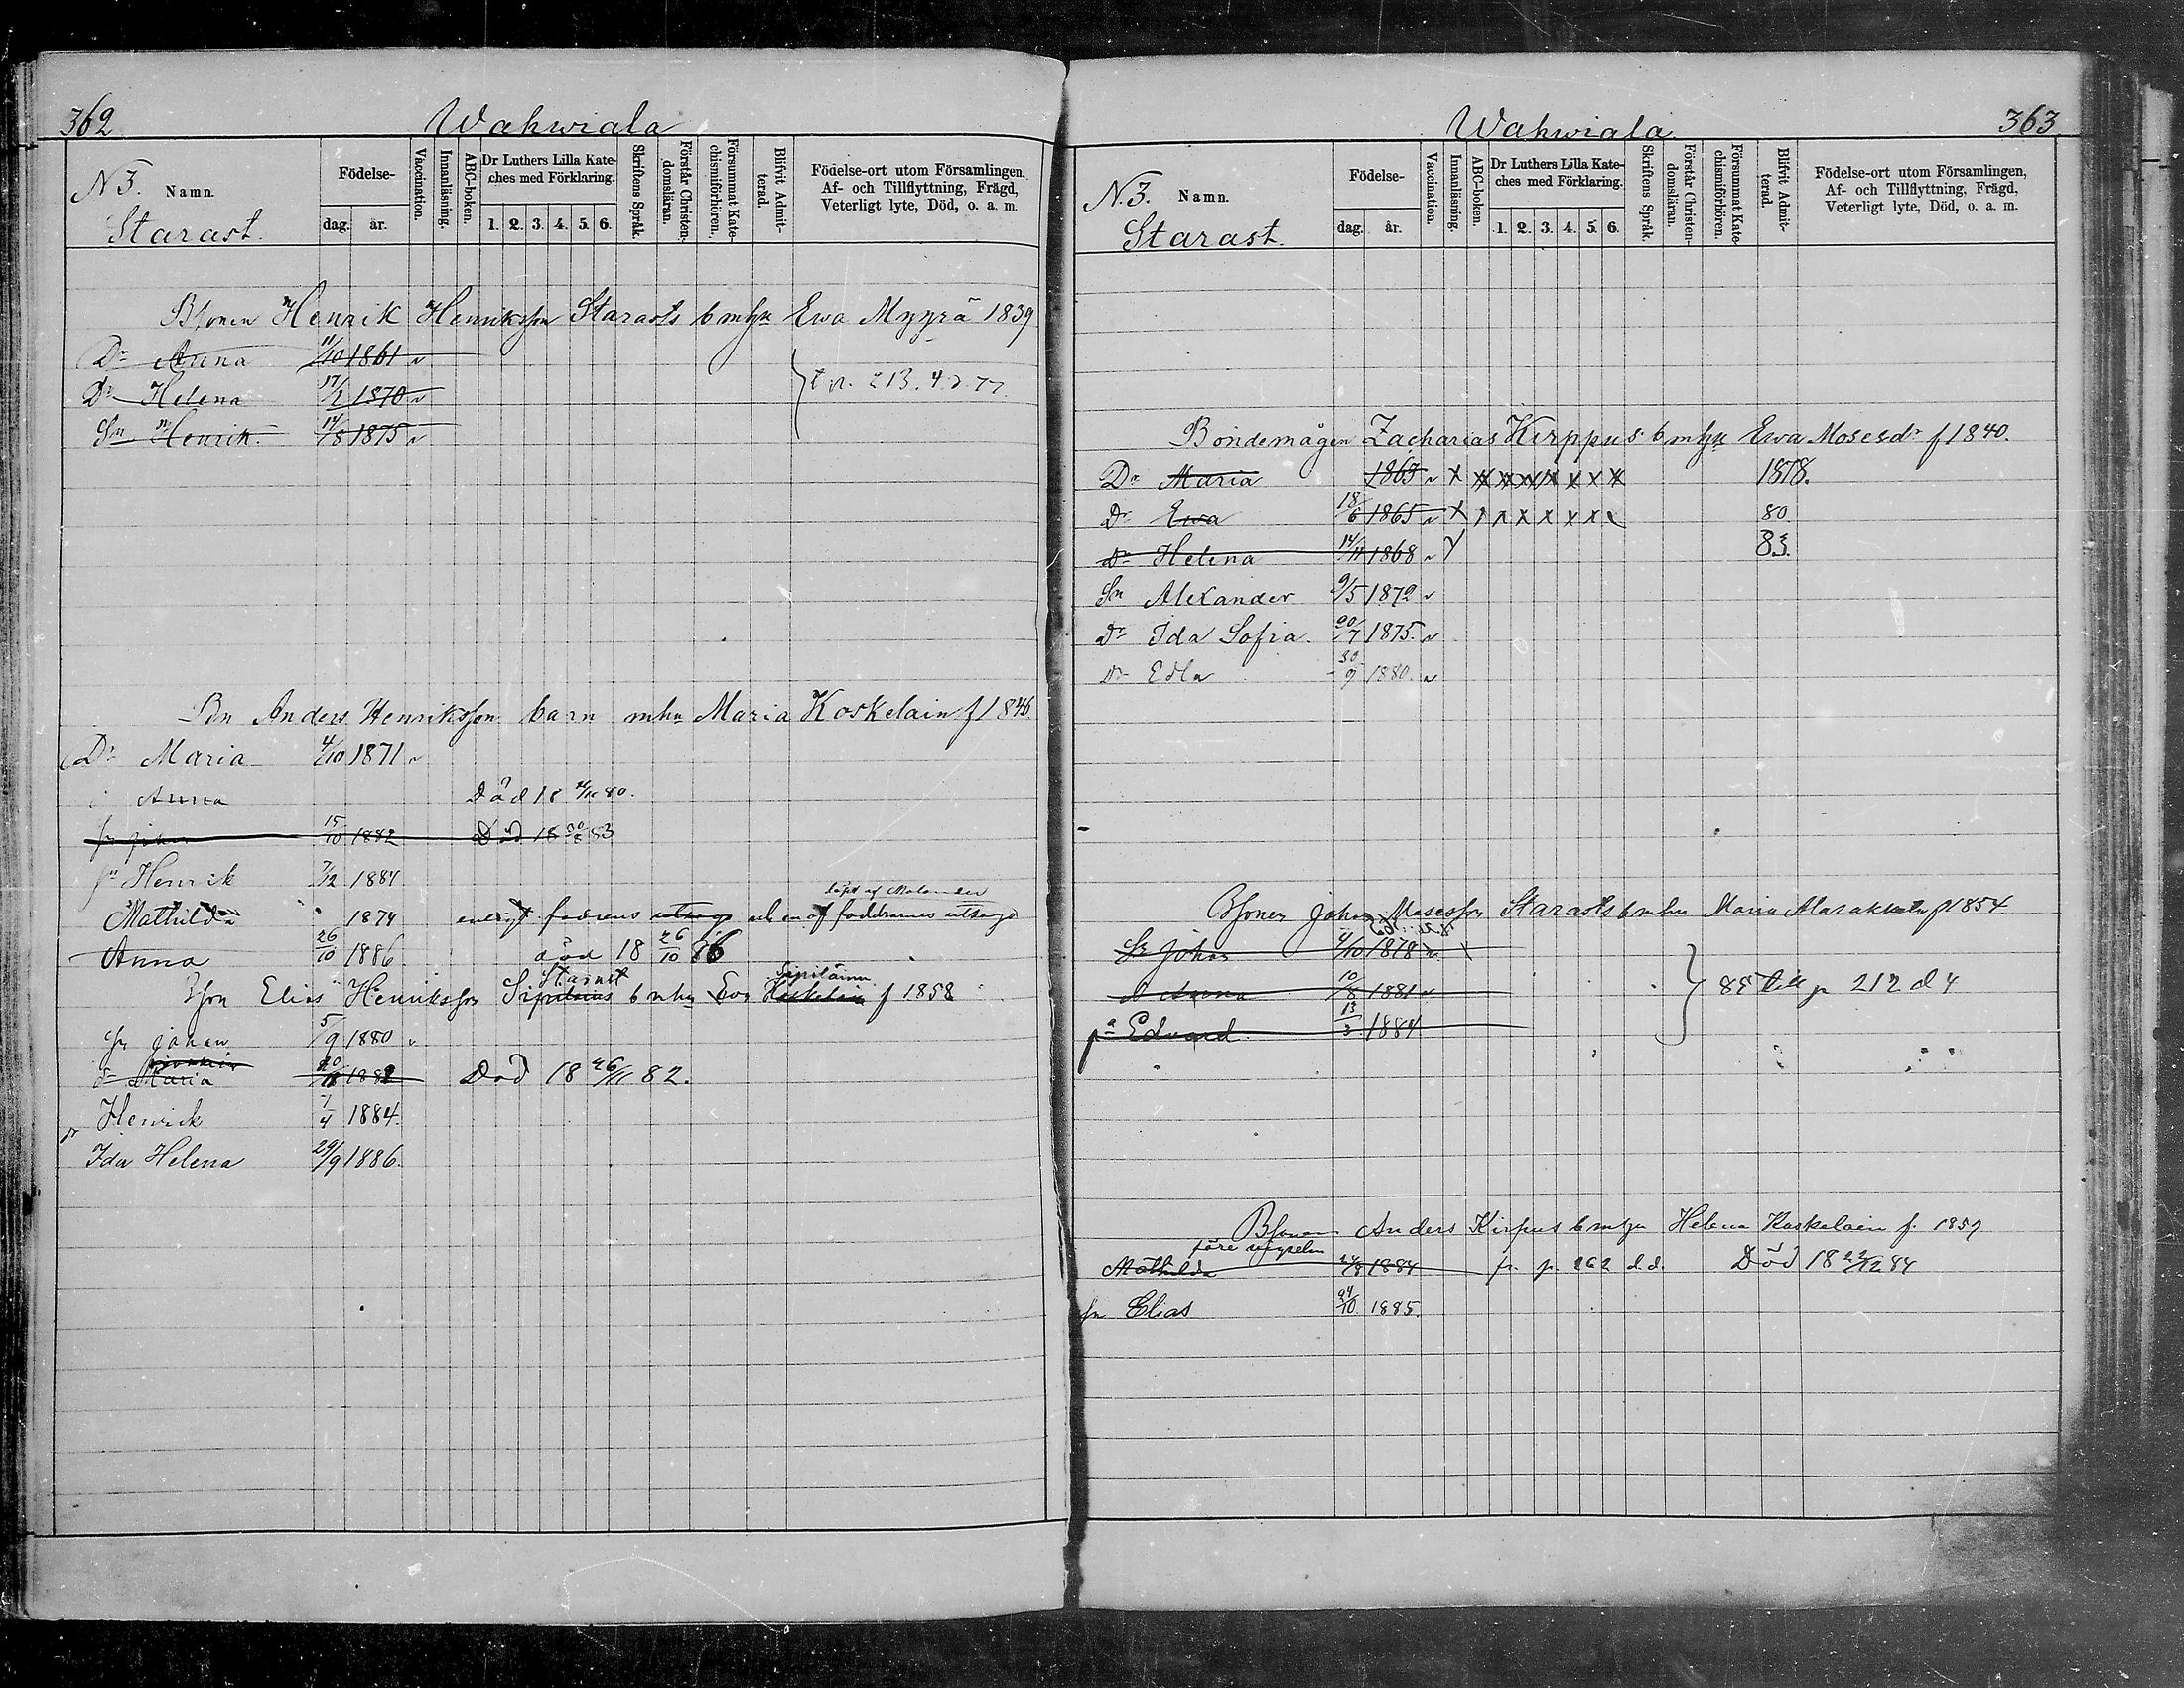 362
Wahwiala
N 3. Namn.
Starast.
Födelse-
dag. år.
Vaccination.
Innanläsning.
ABC-boken.
Dr Luthers Lilla Kate-
ches med Förklaring.
1. 2. 3. 4. 5. 6.
Skriftens Språk.
Förstår Christen-
domsläran.
Försummat Kate-
chismiförhören.
Blifvit Admit-
terad.
Födelse-ort utom Församlingen,
Af- och Tillflyttning, Frägd,
Veterligt lyte, Död, o. a. m.
Bsonen Henrik Henriksson Starasts b mhu Ewa Myyrä 1839
Dr Anna 11/10 1861 v
Dr Helena 17/2 1870 v 213. 4. 77.
Sn Henrik. 14/8 1875 v
Bn Anders Henriksson barn mhu Maria Koskelain f 1846
Dr Maria 4/10 1871 v
Anna Död 18 80.
15/10 1882 Död 18 30/8 83
sn Henrik 7/12 1884
döpt af Molander
Mathilda 1874 enligt fadrens utsago
Anna 26/10 1886. död 18 26/10 86
Starast Sipiläinen
Bson Elias Henriksson Sipiläinen b mhu Eva Koskelain f 1858
Sn Johan 5/9 1880 v
dr Maria 1882 Död 18 26/11 82.
sn Henrik 7/4 1884.
Ida Helena 29/9 1886.
Wahwiala
363
N. 3. Namn.
Starast.
Födelse-
dag. år.
Vaccination.
Innanläsning.
ABC-boken.
Dr Luthers Lilla Kate-
ches med Förklaring.
1. 2. 3. 4. 5. 6.
Skriftens Språk.
Förstår Christen-
domsläran.
Försummat Kate-
chismiförhören.
Blifvit Admit-
terad.
Födelse-ort utom Församlingen,
Af- och Tillflyttning, Frägd,
Veterligt lyte, Död, o. a. m.
Bondemågen Zacharias Kirppus b mhu Ewa Mosesdr f 1840.
Dr Maria 1863 v x x x x x x x x 1878.
Dr Ewa 18/6 1865 v x x x x x x x 80.
Dr Helena 14/11 1868 v 83.
Sn Alexander 9/5 1872 v
Dr Ida Sofia. 20/7 1875. v
Dr Edla 30/9 1880. v
Bsonen Johan Mosesson Starasts b mhu Maria f 1854
Sn Johan 4/10 1878 v
d Anna 10/8 1881 v 85 till p 212 d 4
Edvard. 13/3 1884
Bsonen Anders Kirpus b mhu Helena Koskelain f. 1859
före vigseln
Mathilda 1884 fr. p. 262 d.d. Död 18 22/12 84
sn Elias 24/10 1885.